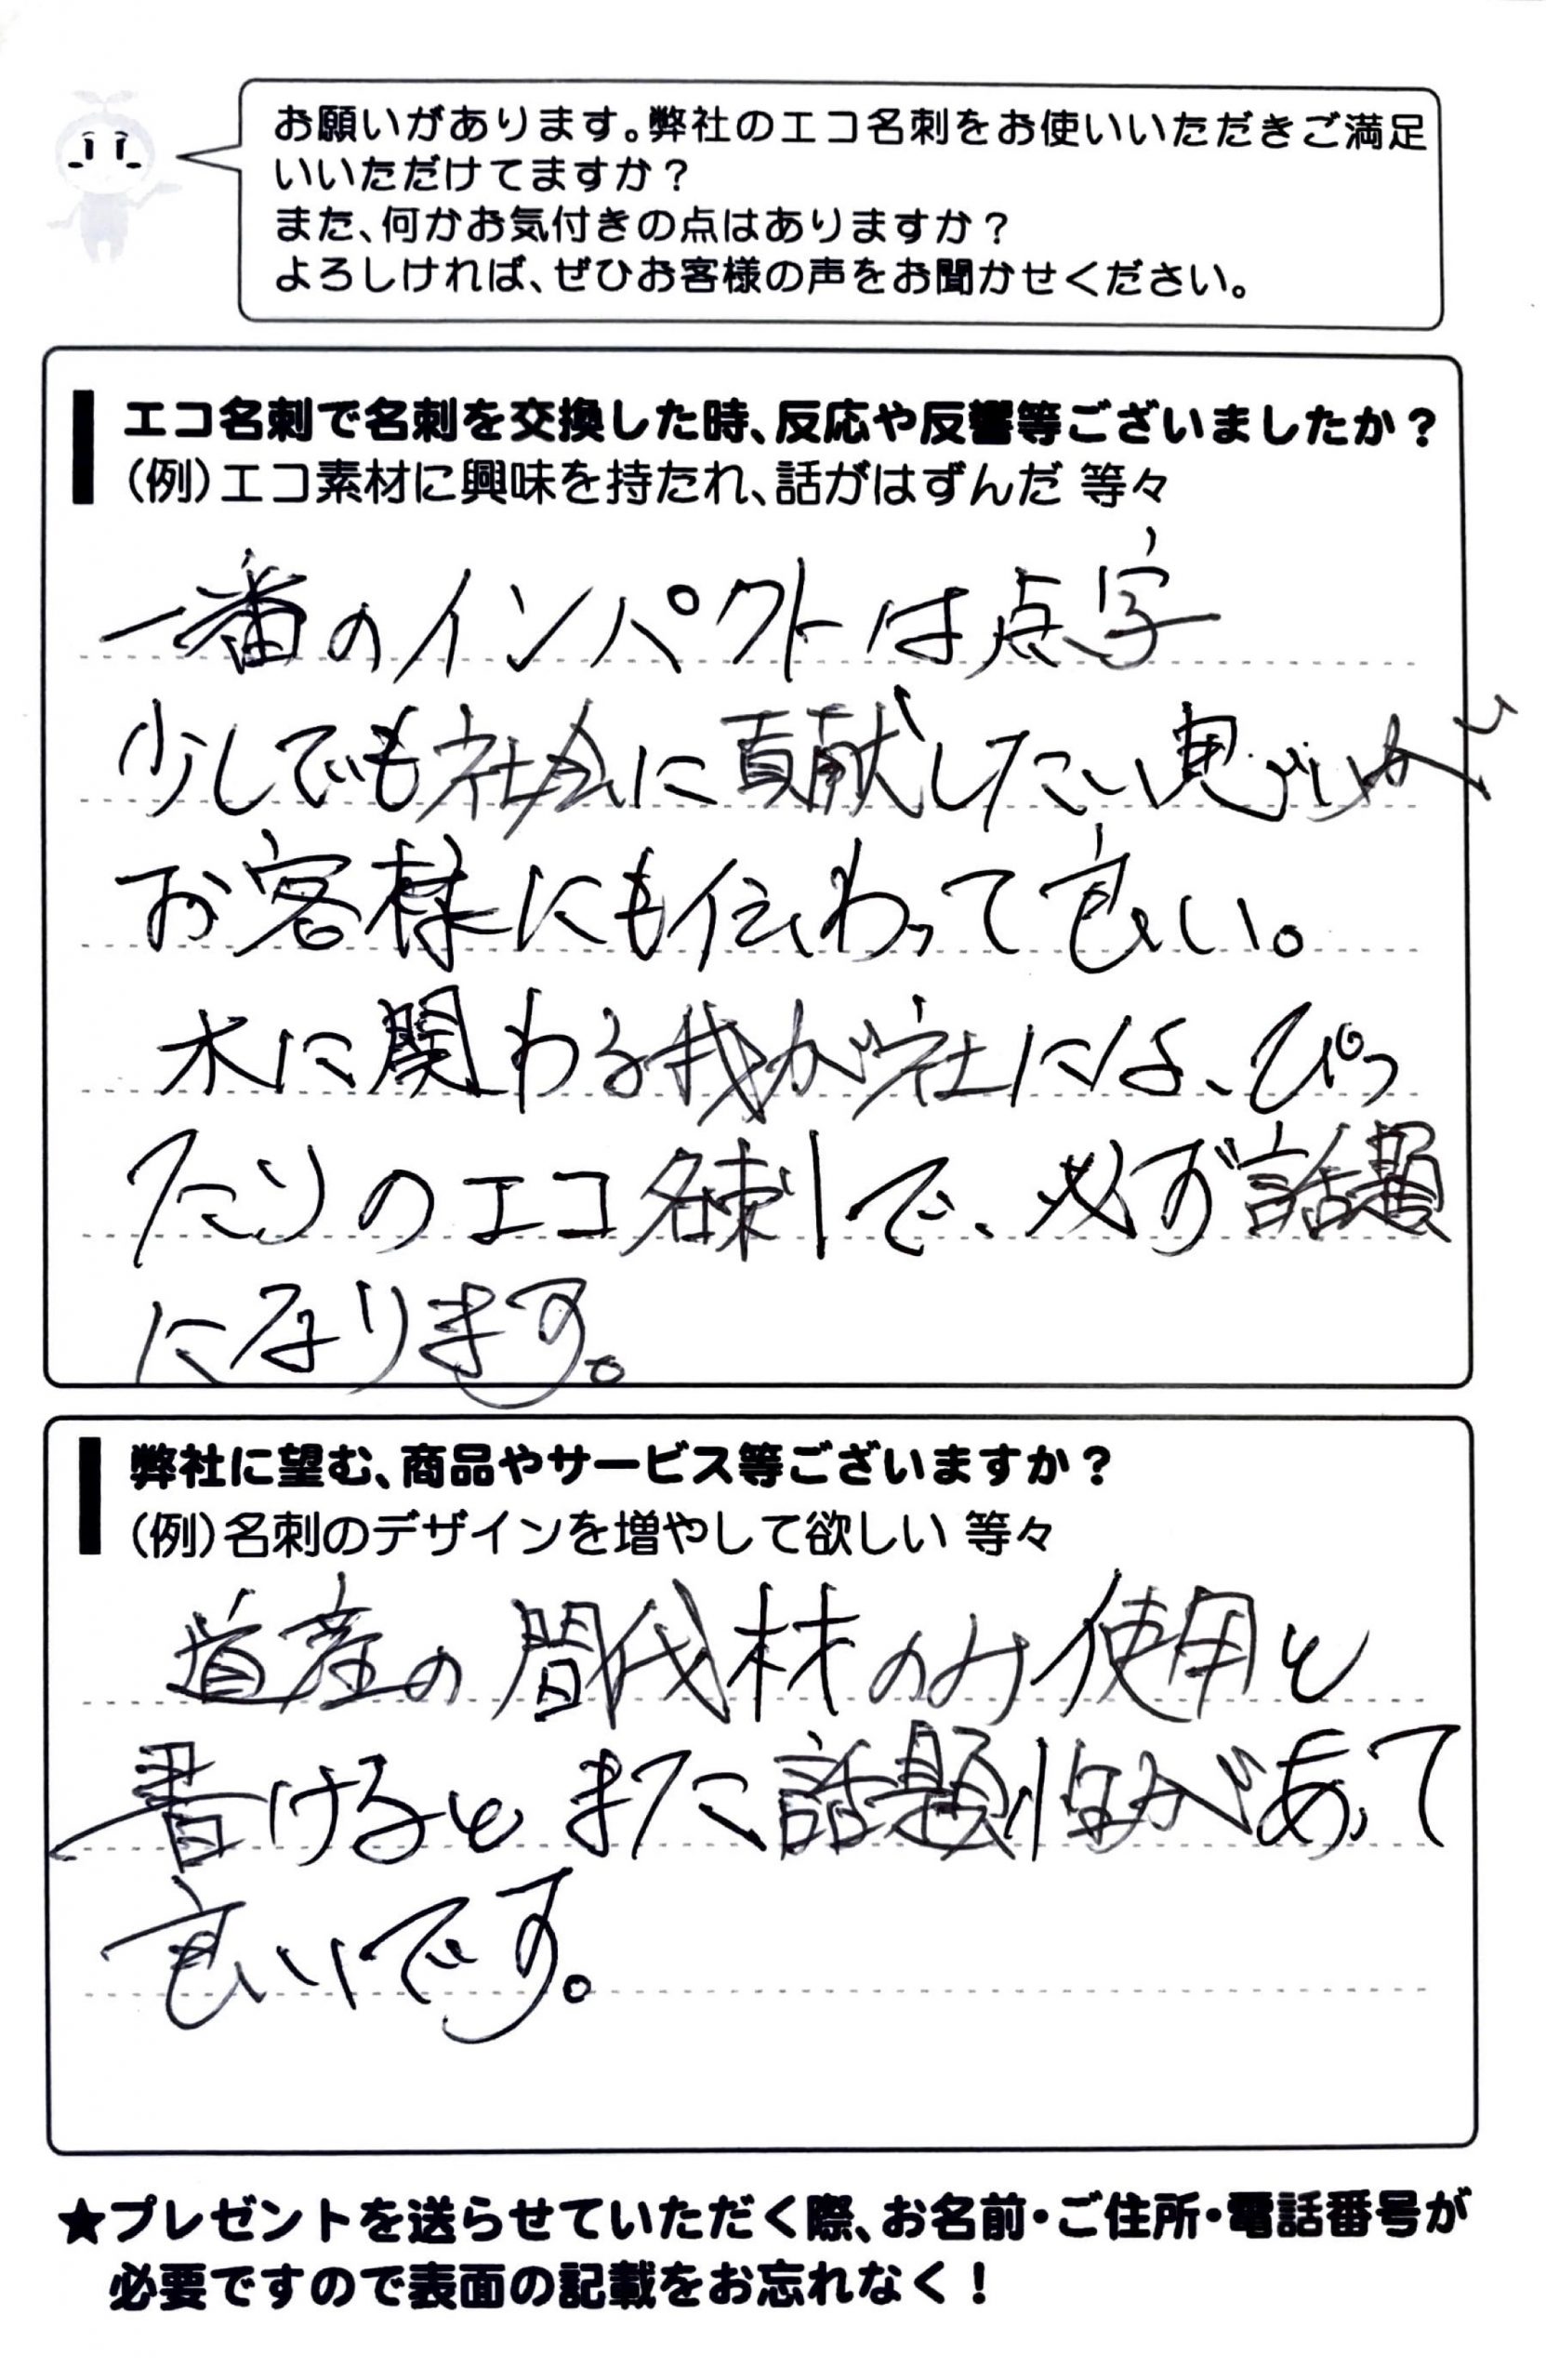 お願いがあります。弊社のエコ名刺をお使いいただきご満足
いいただけてますか？
また、何かお気付きの点はありますか？
よろしければ、ぜひお客様の声をお聞かせください。
エコ名刺で名刺を交換した時、反応や反響等ございましたか？
（例）エコ素材に興味を持たれ、話がはずんだ 等々
一番のインパクトは点字
少しでも社会に貢献したい思いが
お客様にも伝わって良い。
木に関わる我が社には、ぴっ
たりのエコ名刺で、必ず話題
になります。
弊社に望む、商品やサービス等ございますか？
（例）名刺のデザインを増やして欲しい 等々
道産の間伐材のみ使用と
書けると また話題性があって
良いです。
★プレゼントを送らせていただく際、お名前・ご住所・電話番号が
必要ですので表面の記載をお忘れなく！